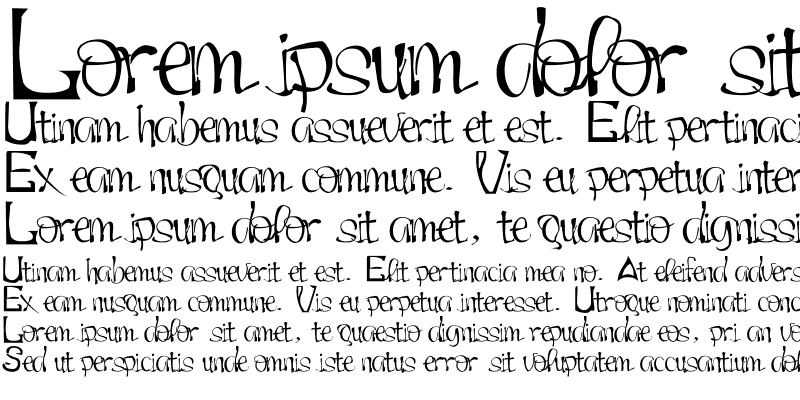 Lorem ipsum dolor sit
Utinam habemus assueverit et est. Elit pertinaci
Ex eam nusquam commune. Vis eu perpetua inter
Lorem ipsum dolor sit amet, te quaestio dignissi
Utinam habemus assueverit et est. Elit pertinacia mea no. At eleifend advers
Ex eam nusquam commune. Vis eu perpetua interesset. Utroque nominati conc
Lorem ipsum dolor sit amet, te quaestio dignissim repudiandae eos, pri an vo
Sed ut perspiciatis unde omnis iste natus error sit voluptatem accusantium dol